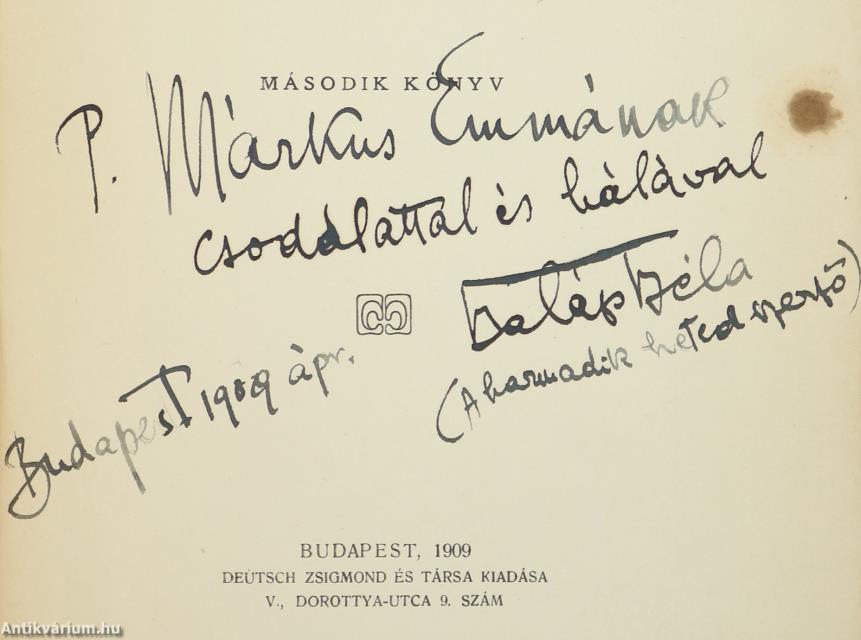 MÁSODIK KÖNYV
P. Márkus Emmának
csodálattal és hálával
Balázs Béla
(A harmadik heted szerző)
Budapest 1909 ápr.
BUDAPEST, 1909
DEUTSCH ZSIGMOND ÉS TÁRSA KIADÁSA
V., DOROTTYA-UTCA 9. SZÁM
Antikvárium.hu